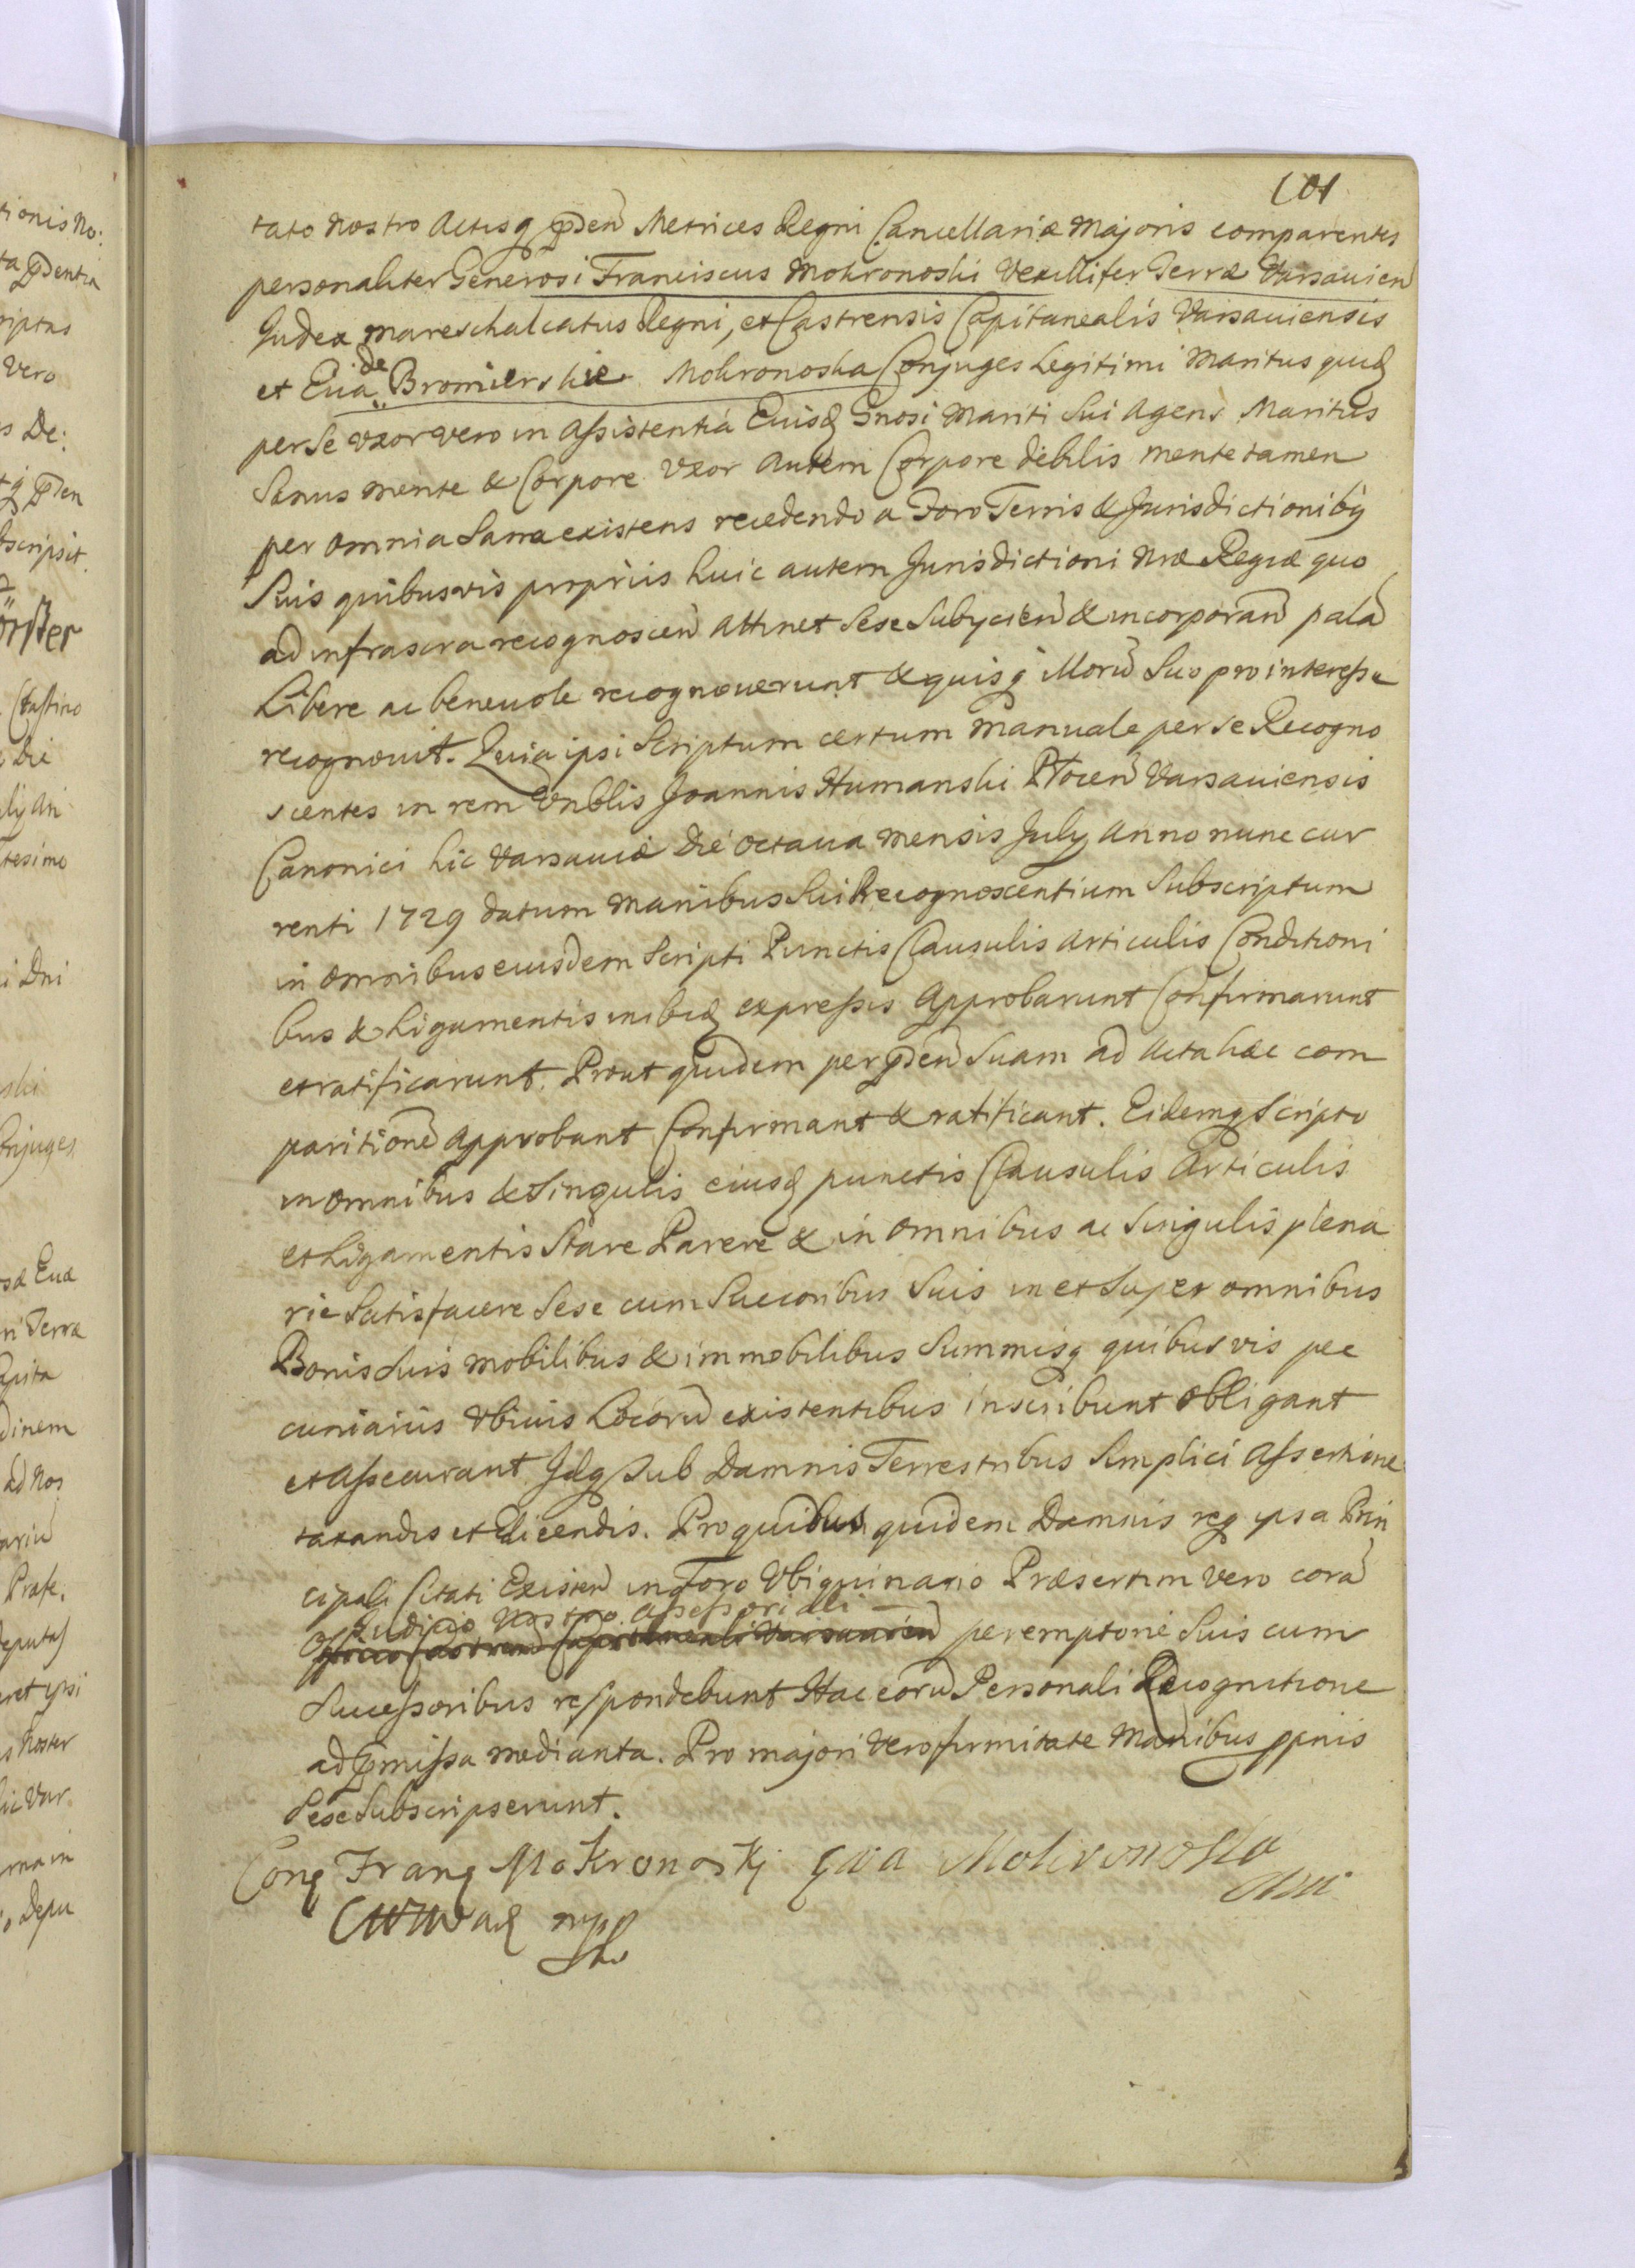 101
tato nostro Actisq pden Metrices Regni Cancellariæ Majoris comparentes
personaliter Generosi Franciscus Mokronoski Vexillifer Terræ Varsavien
Judex Mareschalcatus Regni, et Castrensis Capitanealis Varsaviensis
et Eua de Bromierskie Mokronoska Conjuges Legitimi Maritus quid
per se vxor vero in assistentia Eiusd Gnosi Mariti Sui Agens Maritus
Sanus mente & Corpore Vxor Autem Corpore debilis mente tamen
per omnia Sana existens recedendo a Foro Terris & Jurisdictionibq
Suis quibusvis proprijs huic autem Jurisdictioni Nræ Regiæ quo
ad infrascra recognoscen Attinet Sese Subijcien & incorporan pala
Libere ac beneuole recognouerunt & quisq Moru Suo pro interesse
recognouit. Quia ipsi Scriptum certum Manuale per se Recogno
scentes in rem Vnblis Joannis Humanski Plocen Varsauiensis
Canonici hic Varsauiæ Die octaua mensis July Anno nunc cur
renti 1729 datum Manibus Sui Recognoscentium Subscriptum
in omnibus eiusdem Scripti Punctis Clausulis Articulis Conditioni
bus & Ligamentis inibid expressis Approbarunt Confirmarunt
et ratificarunt. Prout quidem per pden Suam ad Acta hæc com
parition Approbant Confirmant & ratificant. Eidemq Scripto
in omnibus & Singulis eiusd punctis Clausulis Articulis
et Ligamentis Stare Parere & in omnibus ac Singulis plena
rie Satisfacere Sese cum Succoribus Suis in et Super omnibus
Bonis Suis mobilibus & immobilibus Summisq quibusvis pec
cuniarijs Vbiuis Locoru existentibus inscribunt Obligant
et Assecurant Jdq Sub Damnis Terrestribus Simplici Assertione
taxandis et Dicendis. Pro quibus quidem Damnis req ipsa Prin
cipali Citati Existen in Foro Vbiquinario Præsertim vero cora
Judicio Nostro Assessoriali
Officio Castren Capitaneali Varsauien peremptorie Suis cum
Successoribus respondebunt Hac eoru Personali Recognitione
ad pmissa mediante. Pro majori vero firmitate Manibus ppriis
Sese Subscripserunt.
Franq Mokronoskj Ewa Mokronoska